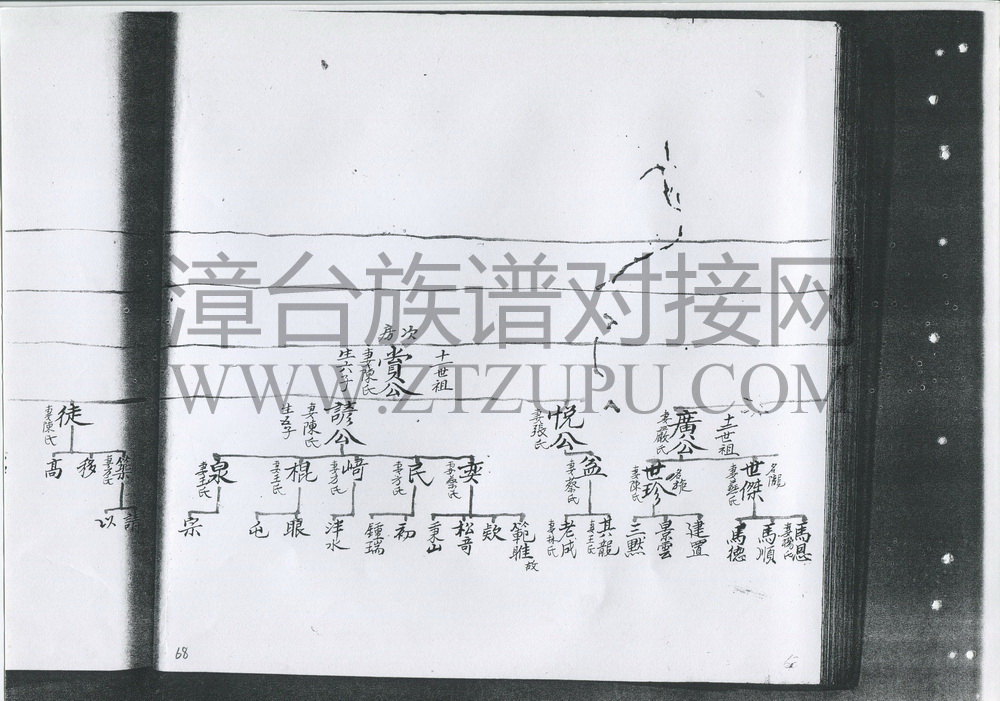 漳台族谱对接网
WWW.ZTZUPU.COM
次房
十一世祖
賞公
妻陳氏
生六子
十二世祖
廣公
妻嚴氏
悦公
妻張氏
諺公
妻陳氏
生五子
徒
妻陳氏
世傑
妻蘇氏
世珍
妻陳氏
盆
妻蔡氏
奕
妻蔡氏
民
妻方氏
崎
妻方氏
棍
妻王氏
泉
妻王氏
築
妻方氏
移
高
馬恩
馬順
馬德
建置
景雲
三點
其龍
妻王氏
老成
妻林氏
範雎
故
欵
松哥
秉山
初
鍾瑞
泮水
眼
屯
宗
以
68